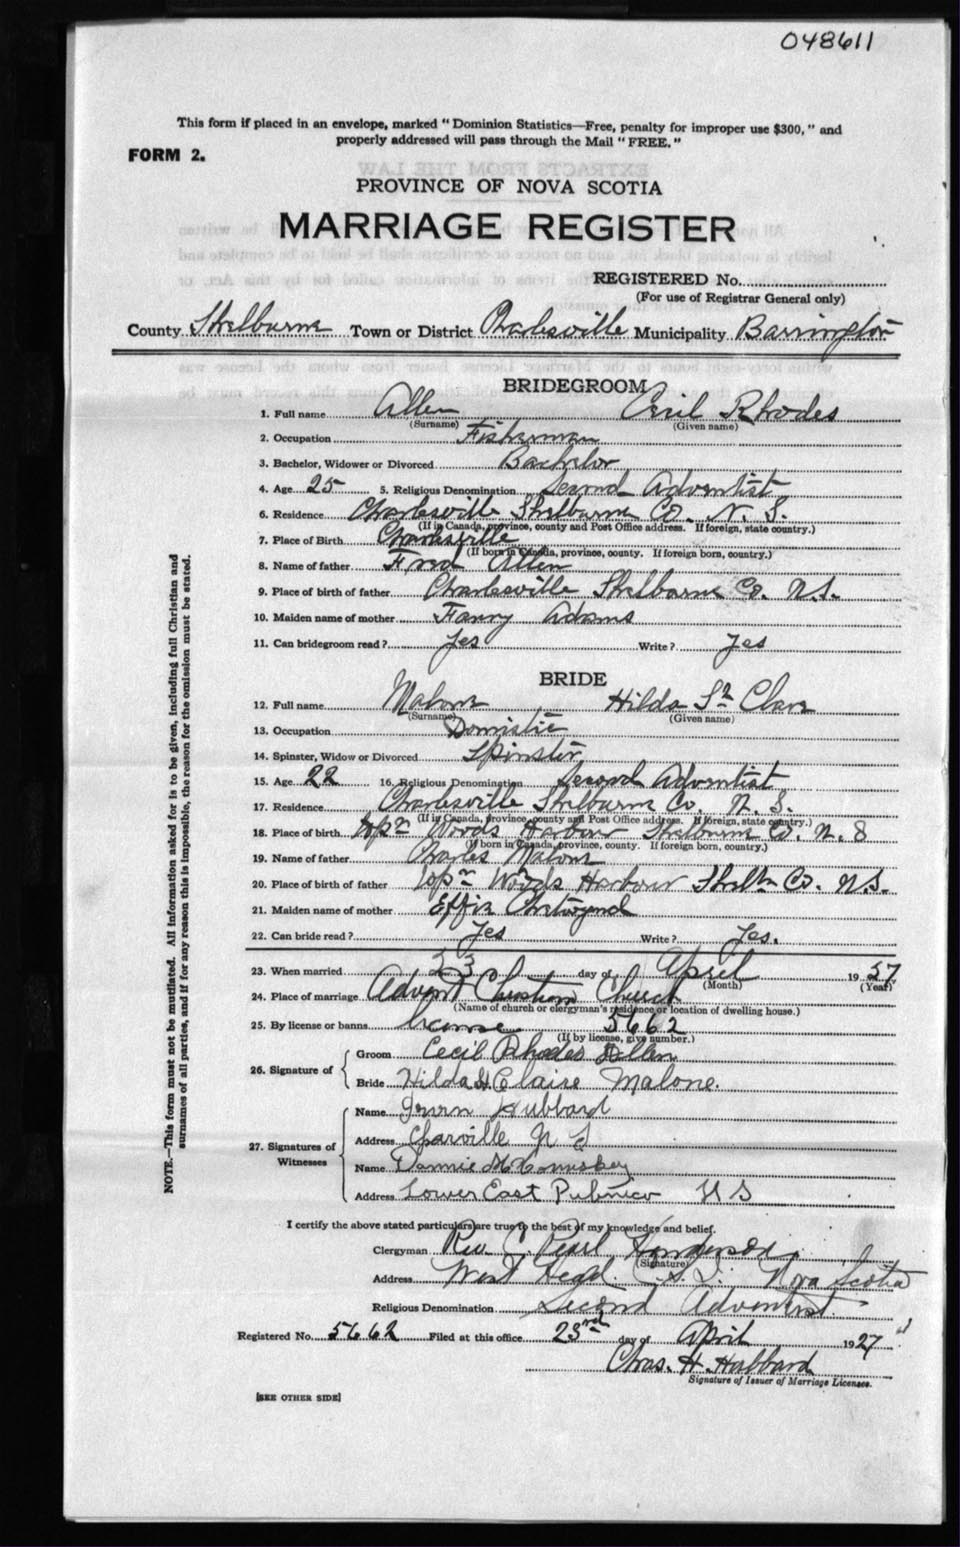 048611
This form if placed in an envelope, marked "Dominion Statistics—Free, penalty for improper use $300," and
properly addressed will pass through the Mail "FREE."
FORM 2.
PROVINCE OF NOVA SCOTIA
MARRIAGE REGISTER
REGISTERED No.
(For use of Registrar General only)
County Shelburne Town or District Charlesville Municipality Barrington
BRIDEGROOM
1. Full name Allen Cecil Rhodes
(Surname) (Given name)
2. Occupation Fisherman
3. Bachelor, Widower or Divorced Bachelor
4. Age 25 5. Religious Denomination Second Adventist
6. Residence Charlesville Shelburne Co. N. S.
(If in Canada, province, county and Post Office address. If foreign, state country.)
7. Place of Birth Charlesville
(If born in Canada, province, county. If foreign born, country.)
8. Name of father Fred Allen
9. Place of birth of father Charlesville Shelburne Co. N.S.
10. Maiden name of mother Fanny Adams
11. Can bridegroom read? Yes Write? Yes
BRIDE
12. Full name Malone Hilda St Clare
(Surname) (Given name)
13. Occupation Domistic
14. Spinster, Widow or Divorced Spinster
15. Age 22 16. Religious Denomination Second Adventist
17. Residence Charlesville Shelburne Co. N. S.
(If in Canada, province, county and Post Office address. If foreign, state country.)
18. Place of birth Upr Woods Harbour Shelburne Co. N. S
(If born in Canada, province, county. If foreign born, country.)
19. Name of father Charles Malone
20. Place of birth of father Upr Woods Harbour Shelbn Co. N.S.
21. Maiden name of mother Effie Chetwynd
22. Can bride read? Yes Write? Yes.
23. When married 23 day of April 1927
(Month) (Year)
24. Place of marriage Advent Christian Church
(Name of church or clergyman's residence or location of dwelling house.)
25. By license or banns license 5662
(If by license, give number.)
26. Signature of
Groom Cecil Rhodes Allen
Bride Hilda St Claire Malone.
27. Signatures of Witnesses
Name Hubbard
Address Charville N S
Name Dannie
Address Lower East Pubnico N S
I certify the above stated particulars are true to the best of my knowledge and belief.
Clergyman Rev. C. Pearl Henderson
(Signature)
Address West Head C.S.I. Nova Scotia
Religious Denomination Second Adventist.
Registered No. 5662 Filed at this office 23rd day of April 1927
Chas. H. Hubbard
Signature of Issuer of Marriage Licenses.
[SEE OTHER SIDE]
NOTE.—This form must not be mutilated. All information asked for is to be given, including full Christian and
surnames of all parties, and if for any reason this is impossible, the reason for the omission must be stated.